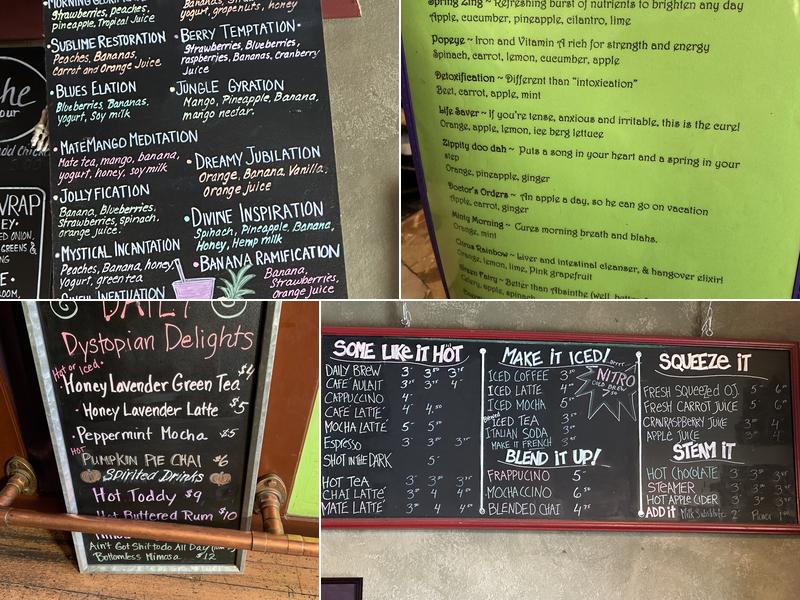 Strawberries, peaches,
pineapple, Tropical Juice
• SUBLIME RESTORATION
Peaches, Bananas,
Carrot and Orange Juice
• BLUES ELATION
Blueberries, Bananas,
yogurt, Soy milk
• MATEMANGO MEDITATION
Mate tea, mango, banana,
yogurt, honey, soy milk
• JOLLYFICATION
Banana, Blueberries,
Strawberries, spinach,
orange juice.
• MYSTICAL INCANTATION
Peaches, Banana, honey
yogurt, greentea
yogurt, grapenuts, honey
• BERRY TEMPTATION •
Strawberries, Blueberries,
raspberries, Bananas, Cranberry
Juice
• JUNGLE GYRATION
Mango, Pineapple, Banana,
mango nectar.
• DREAMY JUBILATION
Orange, Banana, Vanilla,
Orange juice
• DIVINE INSPIRATION
Spinach, Pineapple, Banana,
Honey, Hemp milk
• BANANA RAMIFICATION
Banana,
Strawberries,
Orange juice
WRAP
Spring Zing ~ Refreshing burst of nutrients to brighten any day
Apple, cucumber, pineapple, cilantro, lime
Popeye ~ Iron and Vitamin A rich for strength and energy
Spinach, carrot, lemon, cucumber, apple
Detoxification ~ Different than "intoxication"
Beet, carrot, apple, mint
Life Saver ~ If you're tense, anxious and irritable, this is the cure!
Orange, apple, lemon, ice berg lettuce
Zippity doo dah ~ Puts a song in your heart and a spring in your
step
Orange, pineapple, ginger
Doctor's Orders ~ An apple a day, so he can go on vacation
Apple, carrot, ginger
Minty Morning ~ Cures morning breath and blahs.
Orange, mint
Citrus Rainbow ~ Liver and intestinal cleanser, & hangover elixir!
Orange, lemon, lime, Pink grapefruit
Green Fairy ~ Better than Absinthe (well,
Celery, apple, spinach
DAILY
Dystopian Delights
Hot or iced
• Honey Lavender Green Tea $4
• Honey Lavender Latte $5
• Peppermint Mocha $5
HOT
PUMPKIN PIE CHAI $6
Spirited Drinks
Hot Toddy $9
Hot Buttered Rum $10
Ain't Got Shit to do All Day
Bottomless Mimosa $12
SOME LIKE IT HOT
DAILY BREW 3
CAFE AULAIT 3
CAPPUCCINO 4
CAFE LATTE 4
MOCHA LATTE 5
ESPRESSO 3
SHOT IN THE DARK 5
HOT TEA 3
CHAI LATTE 3 4 4
MATE LATTE 3 4 4
MAKE IT ICED!
ICED COFFEE 3
ICED LATTE 4
ICED MOCHA 5
ICED TEA 3
ITALIAN SODA 3
MAKE IT FRENCH
NITRO
COLD BREW
BLEND IT UP!
FRAPPUCCINO 5
MOCHACCINO 6
BLENDED CHAI 4
SQUEEZE IT
FRESH SQUEEZED O.J. 5 6
FRESH CARROT JUICE 5 6
CRANRASPBERRY JUICE 3 4
APPLE JUICE 3 4
STEAM IT
HOT CHOCOLATE 3 3 3
STEAMER 3 3 3
HOT APPLE CIDER 3 3 3
ADD IT Milk Substitute